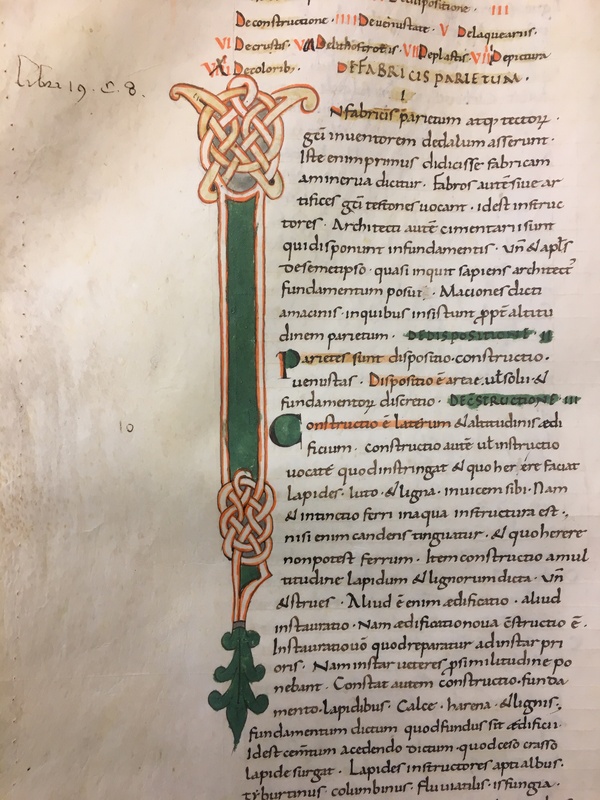 dispositione · III
De constructione · IIII De uenustate · V De laquearus ·
VI De crustis · VII De lithostrotis · VIII De plastis · VIIII De pictura
X De coloribus ·
DE FABRICIS PARIETUM ·
Libri 19. c. 8.
I ·
IN fabricis parietum atq; tectorum ·
greci inuentorem dedalum asserunt ·
Iste enim primus didicisse fabricam
a minerua dicitur · Fabros autē siue ar
tifices greci tectones uocant · id est instruc
tores · Architecti autē cimentarii sunt
qui disponunt in fundamentis · Vn̄ & apl̄s
de semetipso · quasi inquit sapiens architect'
fundamentum posui · Maciones dicti
a macinis · in quibus insistunt ꝓpt̄ altitu
dinem parietum · DE DISPOSITIONE · II
Parietes sunt dispositio · constructio ·
uenustas · Dispositio ē areae ul̄ soli &
fundamentorum discretio · DE CŌSTRUCTIONE III
10
Constructio ē laterum & altitudinis ædi
ficium · constructio autē ul̄ instructio
uocatē quod instringat & quo herere faciat
lapides · luto · & ligna · inuicem sibi · Nam
& intinctio ferri in aqua instructura est ·,
nisi enim candens tinguatur · & quo herere
non potest ferrum · Item constructio a mul
titudine lapidum & lignorum dicta · Vn̄
& strues · Aliud ē enim ædificatio · aliud
instauratio · Nam ædificatio noua c̄structio ē ·
Instauratio uō quod reparatur ad instar pri
oris · Nam instar ueteres ꝓ similitudine po
nebant · Constat autem constructio · funda
mento · lapidibus · Calce · harena · & lignis ·,
fundamentum dictum quod fundus sit ædificii ·
Idest cem̄tum a cedendo dictum · quod ceso crasso
lapide surgat · Lapides in structores apti albus ·
tyburtinus · columbinus · fluuialis · is fungia ·